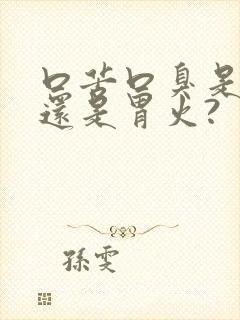 口苦口臭是
還是胃火?
孫雯